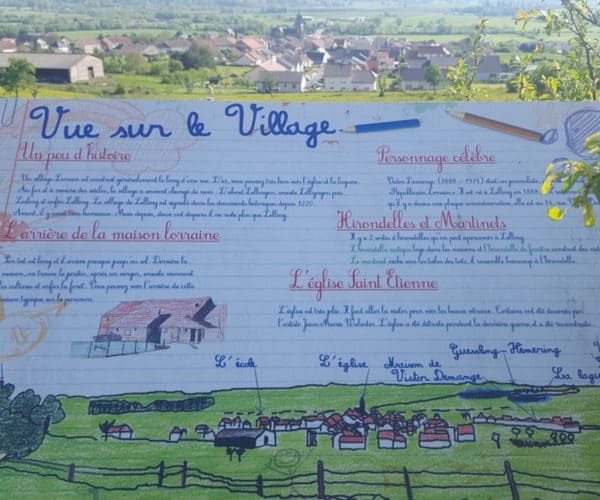 Vue sur le Village
Un peu d'histoire
Un village Lorrain est construit généralement le long d'une rue. D'ici, vous pouvez très bien voir l'église et la lagune.
Au fur et à mesure des siècles, le village a souvent changé de nom : D'abord Lellingen, ensuite Lellingen puis
Lelling et enfin Lelling. Le village de Lelling est signalé dans les documents historiques depuis 1220.
Avant, il y avait trois hameaux. Mais depuis, deux ont disparu il ne reste plus que Lelling.
L'arrière de la maison lorraine
Son toit est long et il arrive presque jusqu'au sol. Derrière la
maison, on trouve le jardin, après un verger, ensuite viennent
les cultures et enfin la forêt. Vous pouvez voir l'arrière de cette
maison typique sur le parcours.
Personnage célèbre
Victor Demange (1888 - 1971) était un journaliste
Républicain Lorrain. Il est né à Lelling en 1888
qu'il y a dessus une plaque commémorative, elle est au 35, rue
Hirondelles et Martinets
Il y a 2 sortes d'hirondelles qu'on peut apercevoir à Lelling.
L'hirondelle rustique loge dans les maisons et l'hirondelle de fenêtre construit des nids
Le martinet niche sous les tuiles des toits, il ressemble beaucoup à l'hirondelle.
L'église Saint Etienne
L'église est très jolie. Il faut aller la visiter pour voir les beaux vitraux. Certains ont été dessinés par
l'artiste Jean-Marie Walster. L'église a été détruite pendant la dernière guerre et a été reconstruite.
L'école
L'église
Maison de
Victor Demange
Guessling-Hémering
La lagu